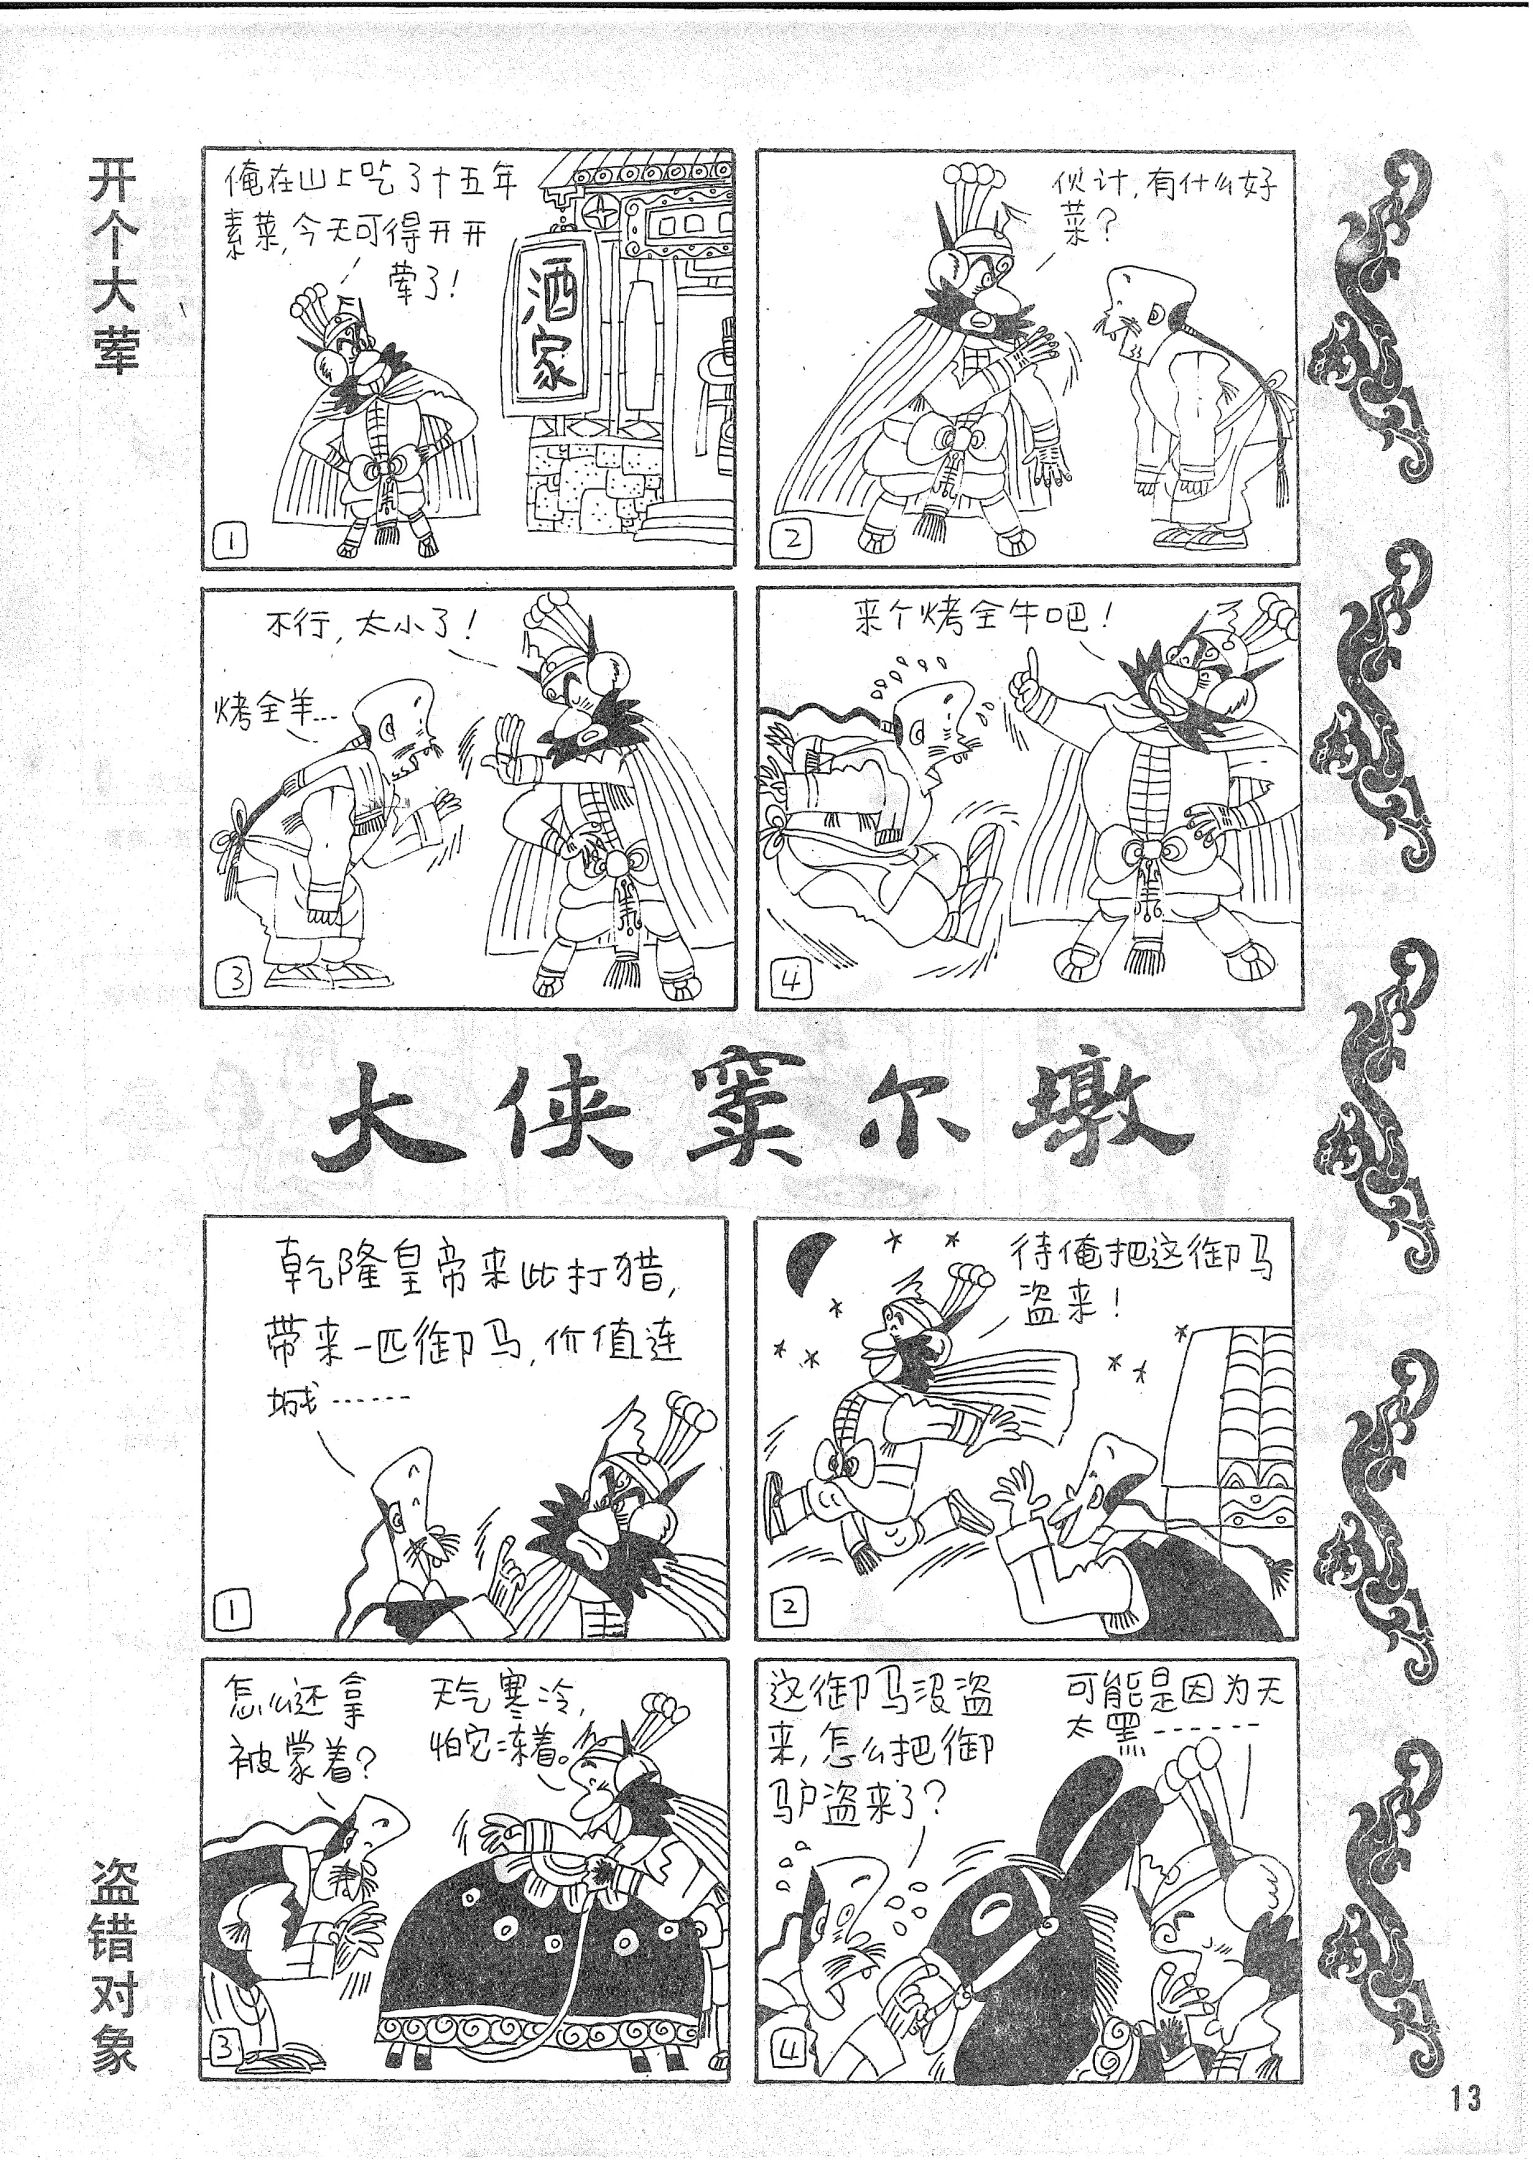 开个大荤
俺在山上吃了十五年
素菜,今天可得开开
荤了!
酒家
1
伙计,有什么好
菜?
2
不行,太小了!
烤全羊…
3
来个烤全牛吧!
4
大侠窦尔墩
盗错对象
乾隆皇帝来此打猎,
带来一匹御马,价值连
城……
1
待俺把这御马
盗来!
2
怎么还拿
被蒙着?
天气寒冷,
怕它冻着。
3
这御马没盗
来,怎么把御
驴盗来了?
可能是因为天
太黑……
4
13